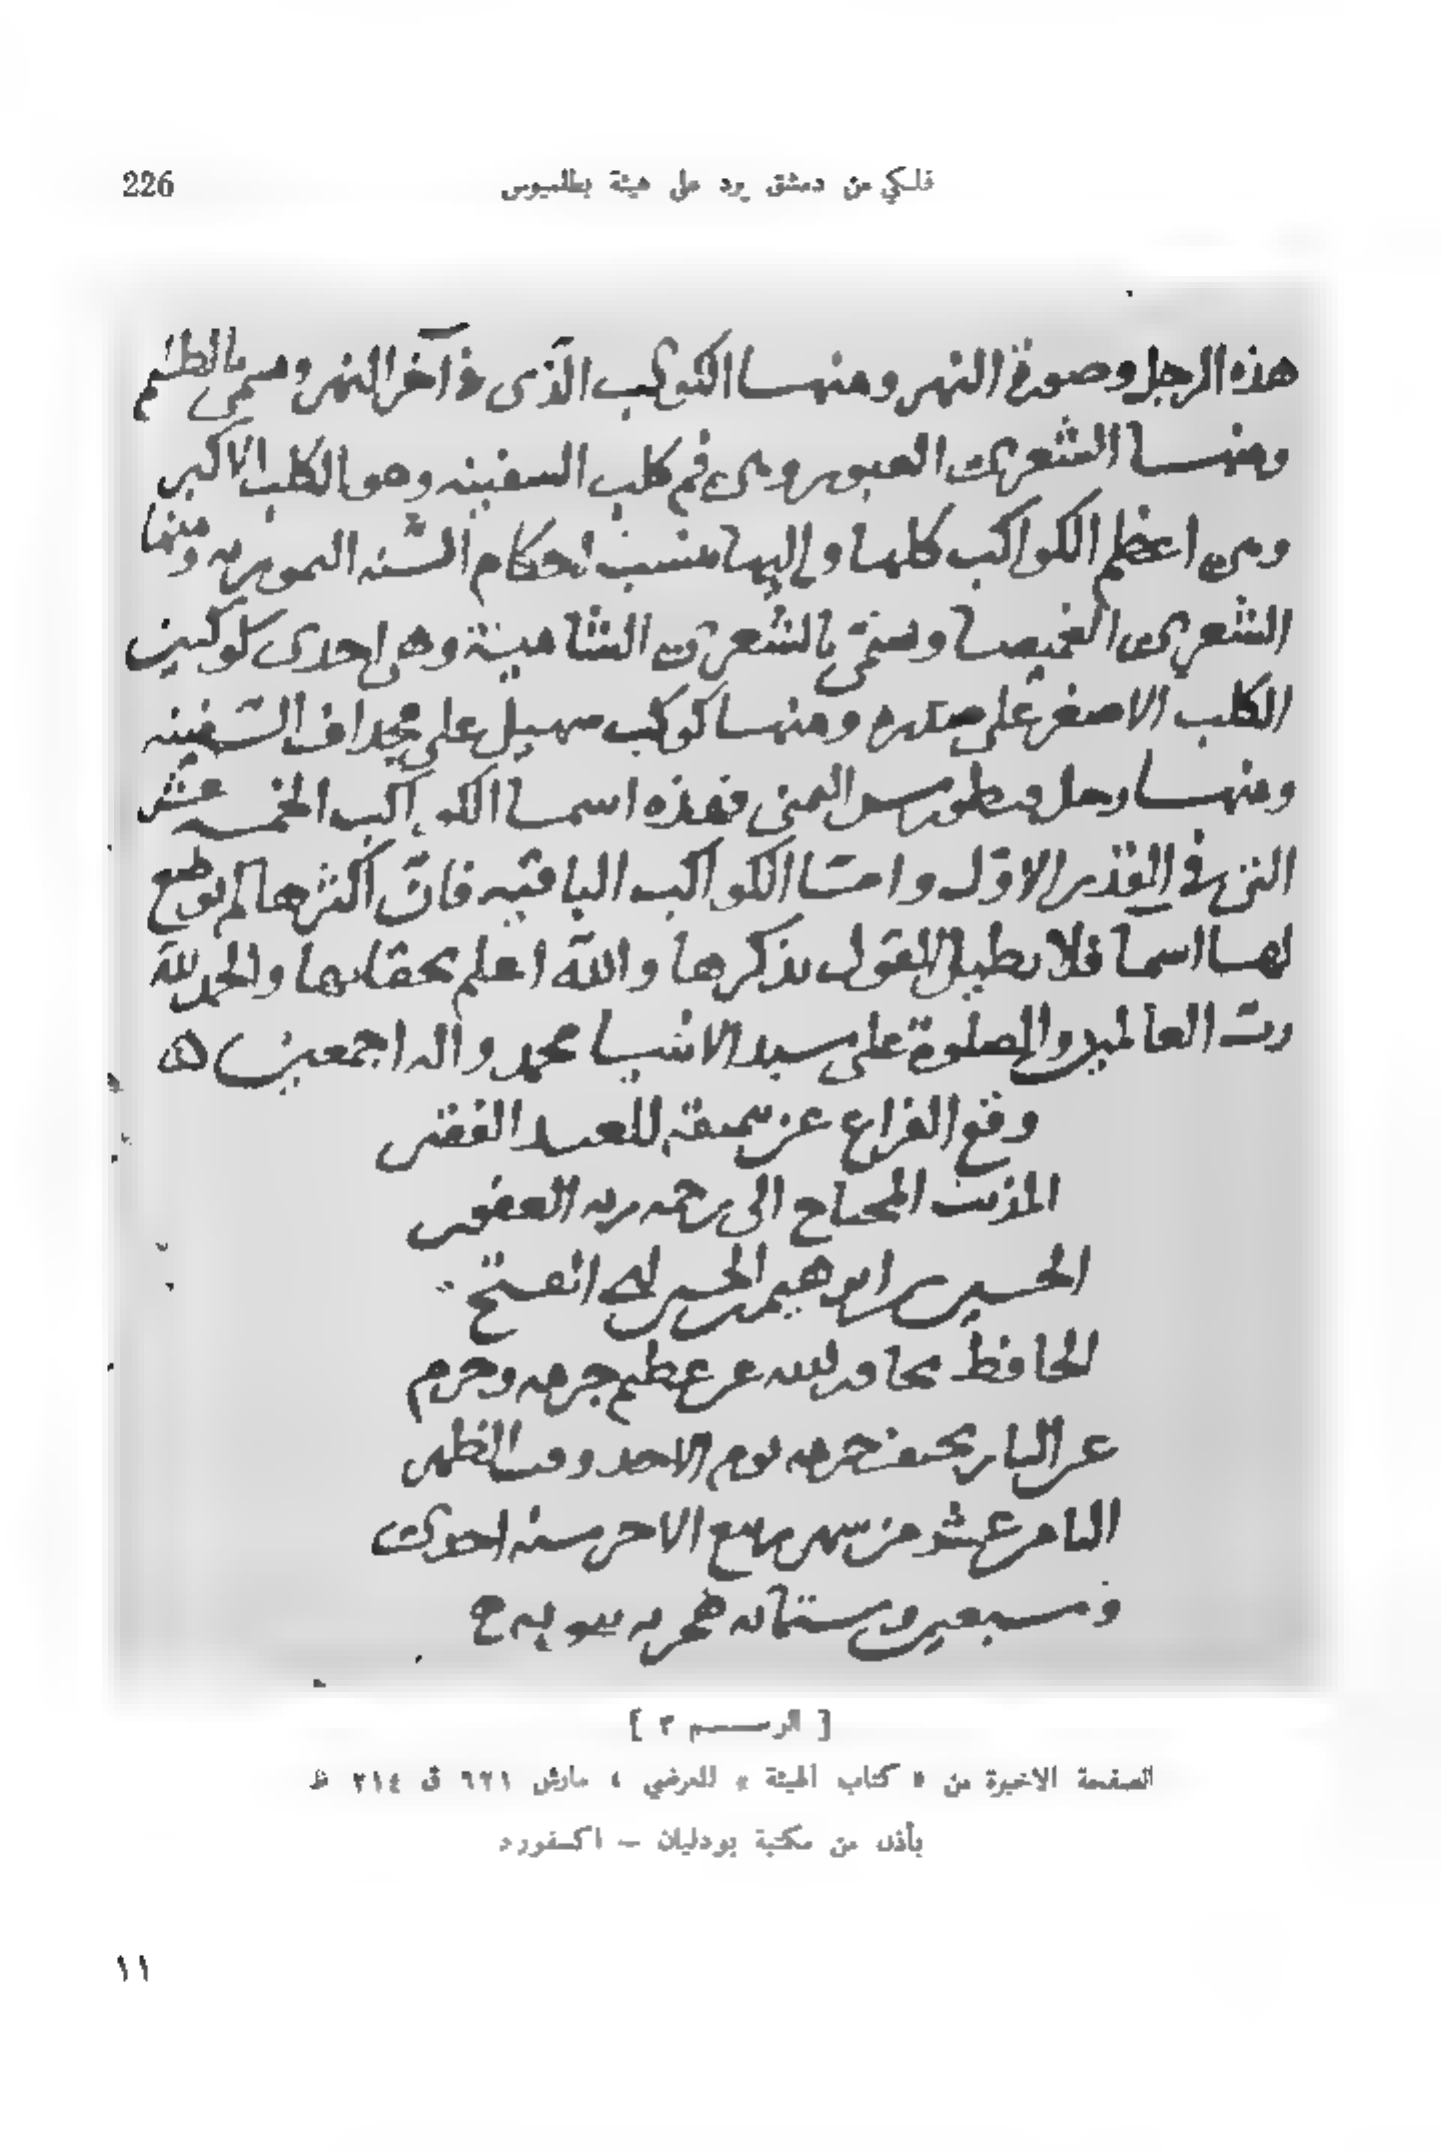 226
فلكي من دمشق يرد على هيئة بطلميوس
هذه الرجل وصورة النهر ومنها الكوكب الذى فى آخر النهر ويسمى بالظليم
ومنها الشعرى العبور وهى فى فم كلب السفينه وهو الكلب الاكبر
وهى اعظم الكواكب كلها واليها ينسب احكام السنه ومنها
الشعرى الغميصا وتسمى بالشعرى الشاهينة وهى احدى كوكبين
الكلب الاصغر على صدره ومنها كوكب سهيل على مجداف السفينه
ومنها رجل قنطورس اليمنى فهذه اسما الكواكب الخمسه عشر
التى فى القدر الاوّل وامّا الكواكب الباقيه فانّ اكثرها لم يوضع
لها اسمآ فلا نطيل القول بذكرها والله اعلم بحقايقها والحمد لله
ربّ العالمين والصلوة على سيد الانبيا محمد واله اجمعين
وقع الفراغ عن للعبد الفقير
المذنب المحتاج الى رحمه ربه الغفور
الحسين بن ابراهيم بن الحسين ابى الفتح
الحافظ تجاوز الله عن عظيم جرمه
يوم الاحد وقت الظهر
الثامن عشر من شهر ربيع الاخر سنه احدى
وسبعين وستمائه هجريه
[ الرسم ٣ ]
الصفحة الاخيرة من « كتاب الهيئة » للعرضي ، مارش ٦٢١ ق ٢١٤ ظ
بأذن من مكتبة بودليان – اكسفورد
١١